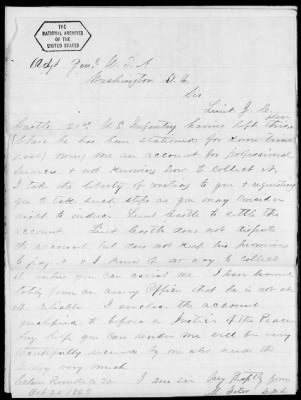 THE
NATIONAL ARCHIVES
OF THE
UNITED STATES
Adgt Genl U.S.A
Washington D.C.
Sir
Lieut J. C.
Castle 21st U.S. Infantry having left this place
(Where he has been stationed for some time
past) owing me an account for professional
services & not knowing how to collect it,
I take the liberty of writing to you & requesting
you to take such steps as you may consider
right to induce Lieut Castle to settle the
account. Lieut Castle does not dispute
the account but does not keep his promises
to pay it & I know of no way to collect
it unless you can assist me. I have learned
lately from an army Officer that he is not at
all reliable. I enclose the account
before a Justice of the Peace
Any help you can render me will be very
thankfully received by me who need the
money very much
I am sir Very Respfly yours
Oct 20 1868